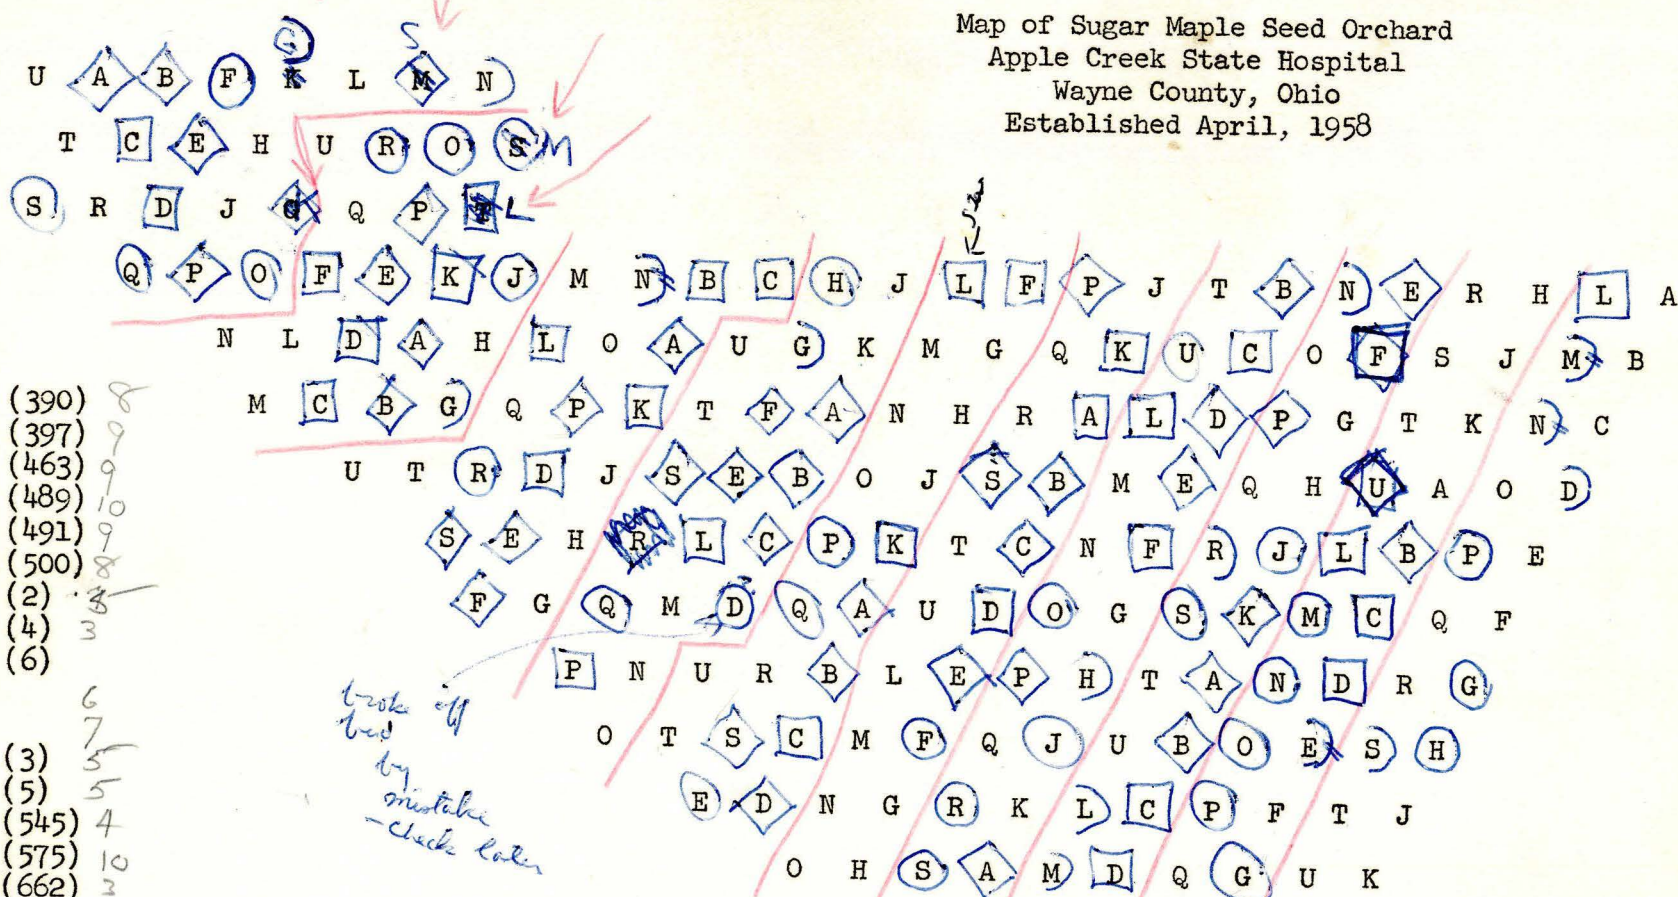 Map of Sugar Maple Seed Orchard
Apple Creek State Hospital
Wayne County, Ohio
Established April, 1958
G S
U A B F K L M N
T C E H U R O S M
S R D J G Q P T L
Q P O F E K J M N B C H J L F P J T B N E R H L A
N L D A H L O A U G K M G Q K U C O F S J M B
M C B G Q P K T F A N H R A L D P G T K N C
U T R D J S E B O J S B M E Q H U A O D
S E H R L C P K T C N F R J L B P E
F G Q M D Q A U D O G S K M C Q F
P N U R B L E P H T A N D R G
O T S C M F Q J U B O E S H
E D N G R K L C P F T J
O H S A M D Q G U K
broke off
bud
by
mistake
- check later
(390) 8
(397) 9
(463) 9
(489) 10
(491) 9
(500) 8
(2)
(4) 3
(6)
6
7
(3) 5
(5) 5
(545) 4
(575) 10
(662) 3